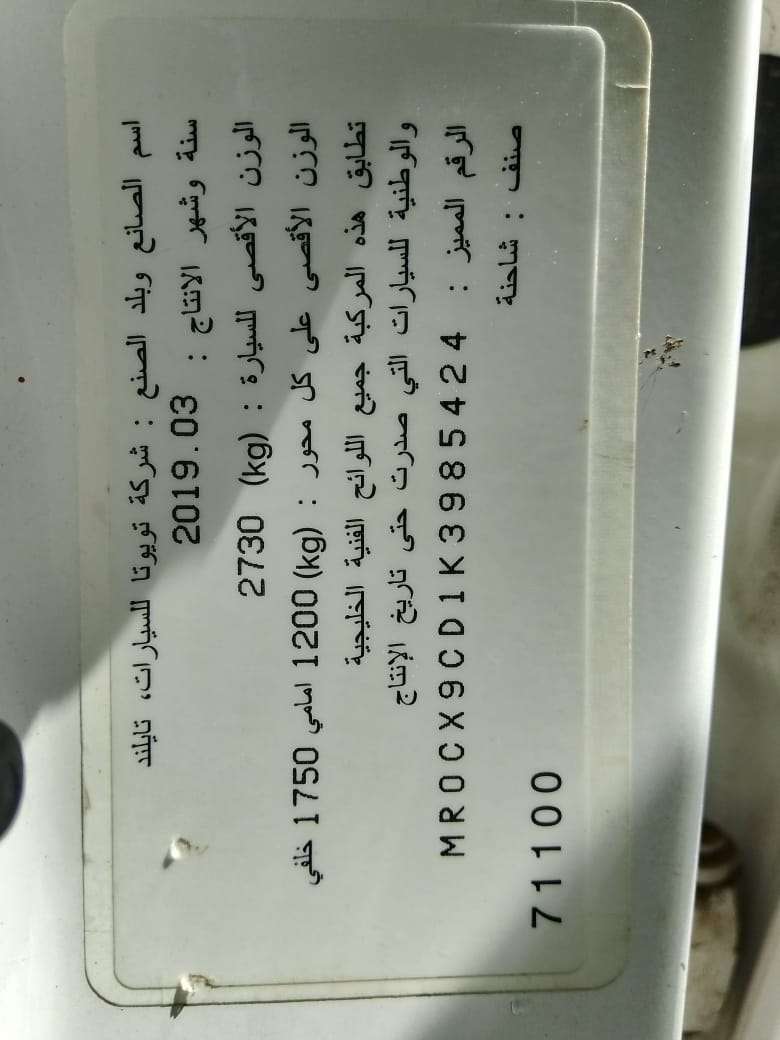 اسم الصانع وبلد الصنع : شركة تويوتا للسيارات، تايلند
سنة وشهر الانتاج : 2019.03
الوزن الأقصى للسيارة : (kg) 2730
الوزن الأقصى على كل محور : (kg) 1200 امامي 1750 خلفي
تطابق هذه المركبة جميع اللوائح الفنية الخليجية
والوطنية للسيارات التي صدرت حتى تاريخ الإنتاج
الرقم المميز : MR0CX9CD1K3985424
صنف : شاحنة
71100